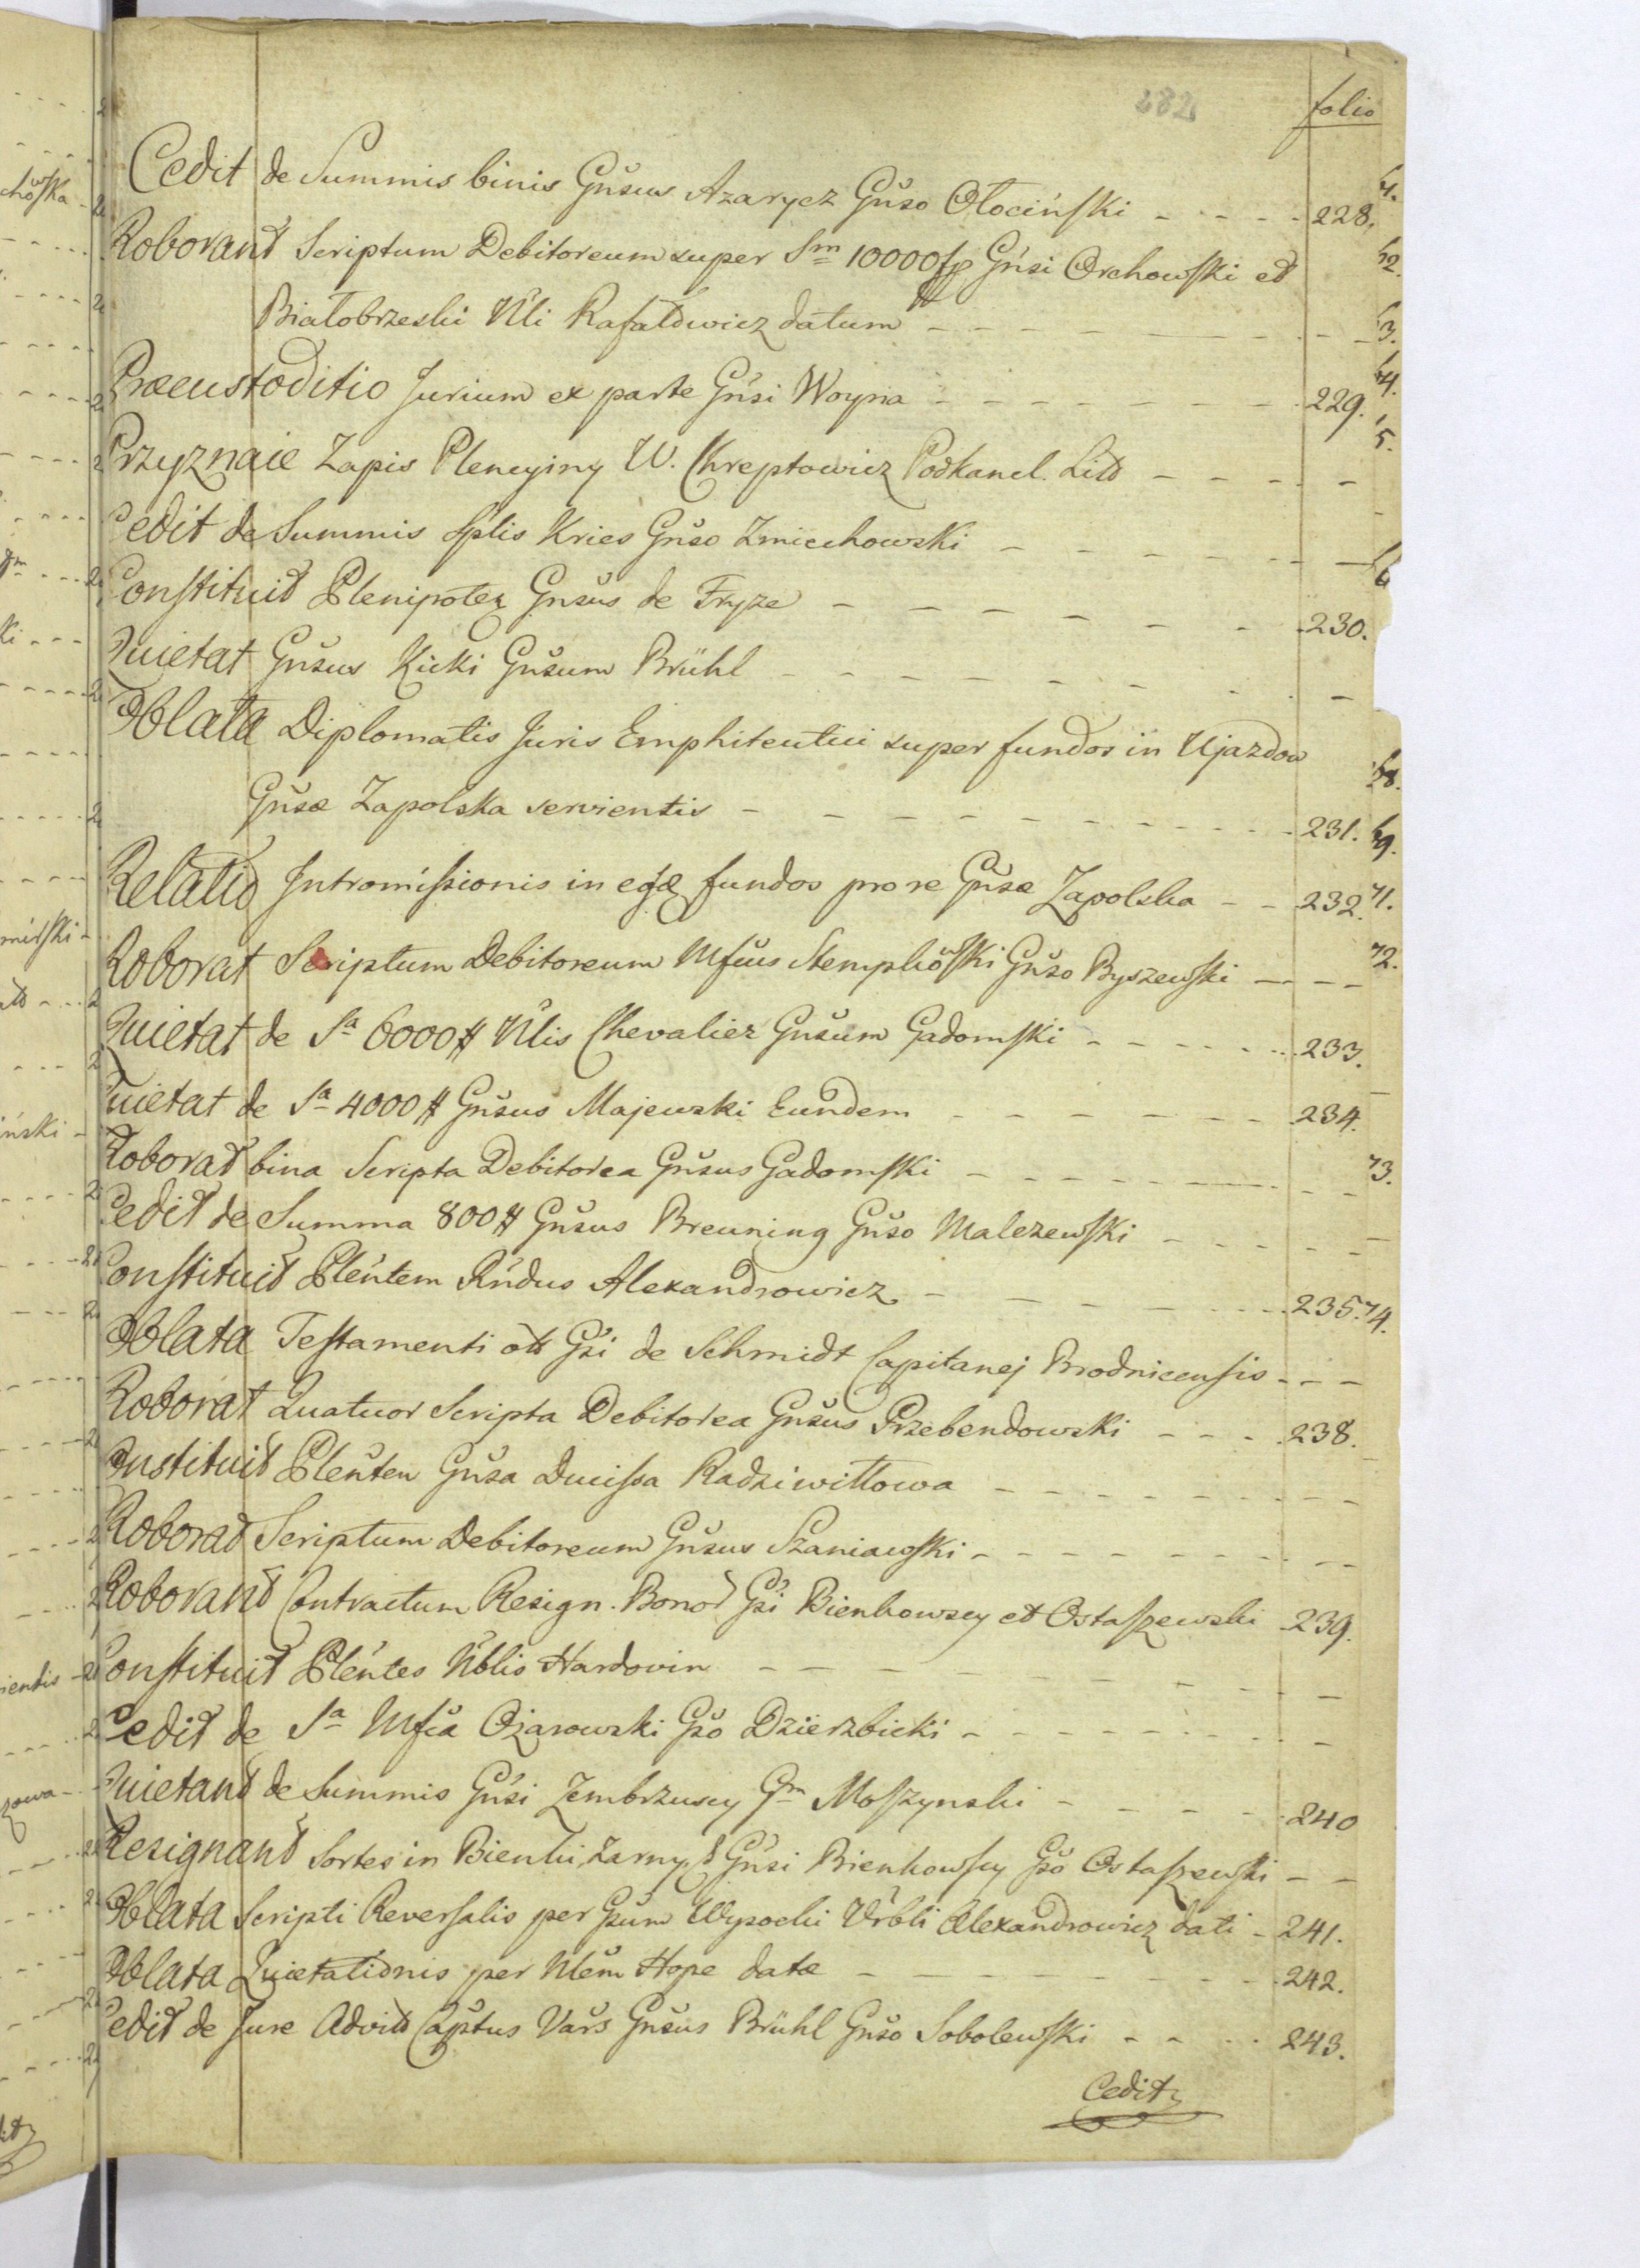 282
folio
Cedit de Summis binis Gňsus Azarycz Gňso Otociński - - - - 228.
Roborant Scriptum Debitoreum super Sm 10000 Gńsi Orchowski et
Białobrzeski Nli Rafałowicz datum - - - - - - -
Præcustoditio Jurium ex parte Gńsi Woyna - - - - - - - 229.
Przyznaie Zapis Plencyiny W. Chreptowicz Podkancl. Litt - - - -
Cedit de Summis Sptis Kries Gňso Zmiechowski - - - - - -
Constituit Plenipotez Gnsus de Fryze - - - - - - - 230.
Quietat Gňsus Kicki Gňsum Brühl - - - - - - - -
Oblata Diplomatis Juris Emphiteutici super fundos in Ujazdow
Gňsæ Zapolska servientis - - - - - - - - - 231.
Relatio Intromissionis in eosd fundos pro re Gňsæ Zapolska - - 232.
Roborat Scriptum Debitoreum Mfcus Stempkowski Gňso Byszewski - - -
Quietat de Sa 6000 # Nlis Chevalier Gňsum Gadomski - - - - - - 233.
Quietat de Sa 4000 # Gňsus Majewski Eundem - - - - - - 234.
Roborat bina Scripta Debitorea Gňsus Gadomski - - - - - - -
Cedit de Summa 800 # Gňsus Breuning Gňso Malczewski - - - - -
Constituit Pleńtem Rńdus Alexandrowicz - - - - - - - 235.
Oblata Testamenti olt Gsi de Schmidt Capitanej Brodnicensis - - -
Roborat Quatuor Scripta Debitorea Gnsus Przebendowski - - - 238.
Constituit Pleňten Gňsa Ducissa Radziwiłłowa - - - - - - -
Roborat Scriptum Debitoreum Gňsus Szaniawski - - - - - - - -
Roborant Contractum Resign. Bonor Gsi Bienkowscy et Ostaszewski 239.
Constituit Pleńtes Nblis Hardovin - - - - - - - -
Cedit de Sa Mfca Ożarowski Gso Dzierzbicki - - - - - - -
Quietant de Summis Gńsi Zembrzuscy Gm Moszynski - - - - 240
Resignant Sortes in Bienki Zarny Gńsi Bienkowscy Gso Ostaszewski - -
Oblata Scripti Reversalis per Gsum Wysocki Vrbli Alexandrowicz dati - 241.
Oblata Quietationis per Nlem Hope datæ - - - - - - - 242.
Cedit de Jure Advit Captus Vars Gnsus Brühl Gňso Sobolewski - - - 243.
Cedit